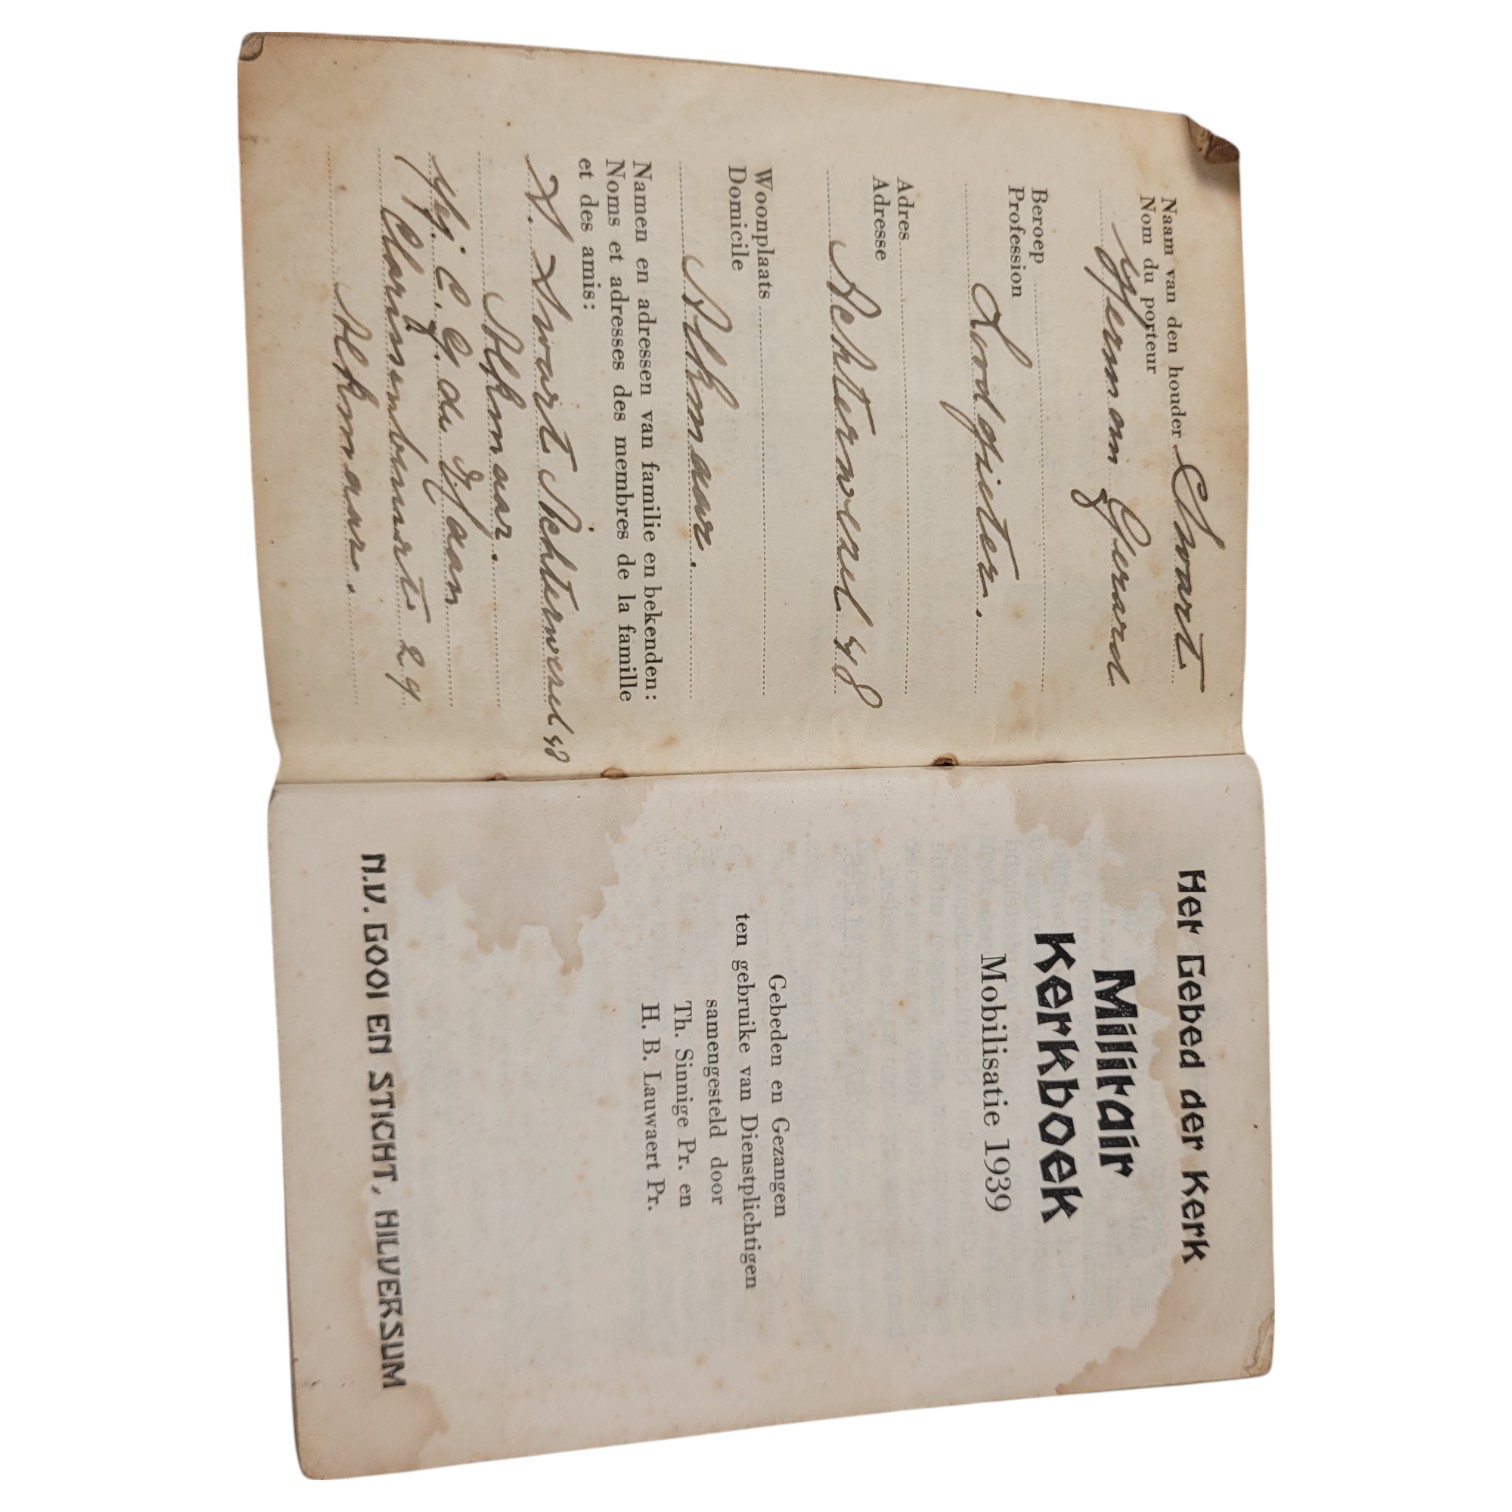 Naam van den houder Swart
Nom du porteur
Herman Gerard
Beroep
Profession
Loodgieter.
Adres
Adresse
Achterwezel 48
Woonplaats
Domicile
Alkmaar.
Namen en adressen van familie en bekenden:
Noms et adresses des membres de la famille
et des amis:
Swart Achterwezel 48
Alkmaar.
Mej. C. G. de Haan
29
Alkmaar.
Het Gebed der Kerk
Militair
Kerkboek
Mobilisatie 1939
Gebeden en Gezangen
ten gebruike van Dienstplichtigen
samengesteld door
Th. Sinnige Pr. en
H. B. Lauwaert Pr.
N.V. GOOI EN STICHT, HILVERSUM